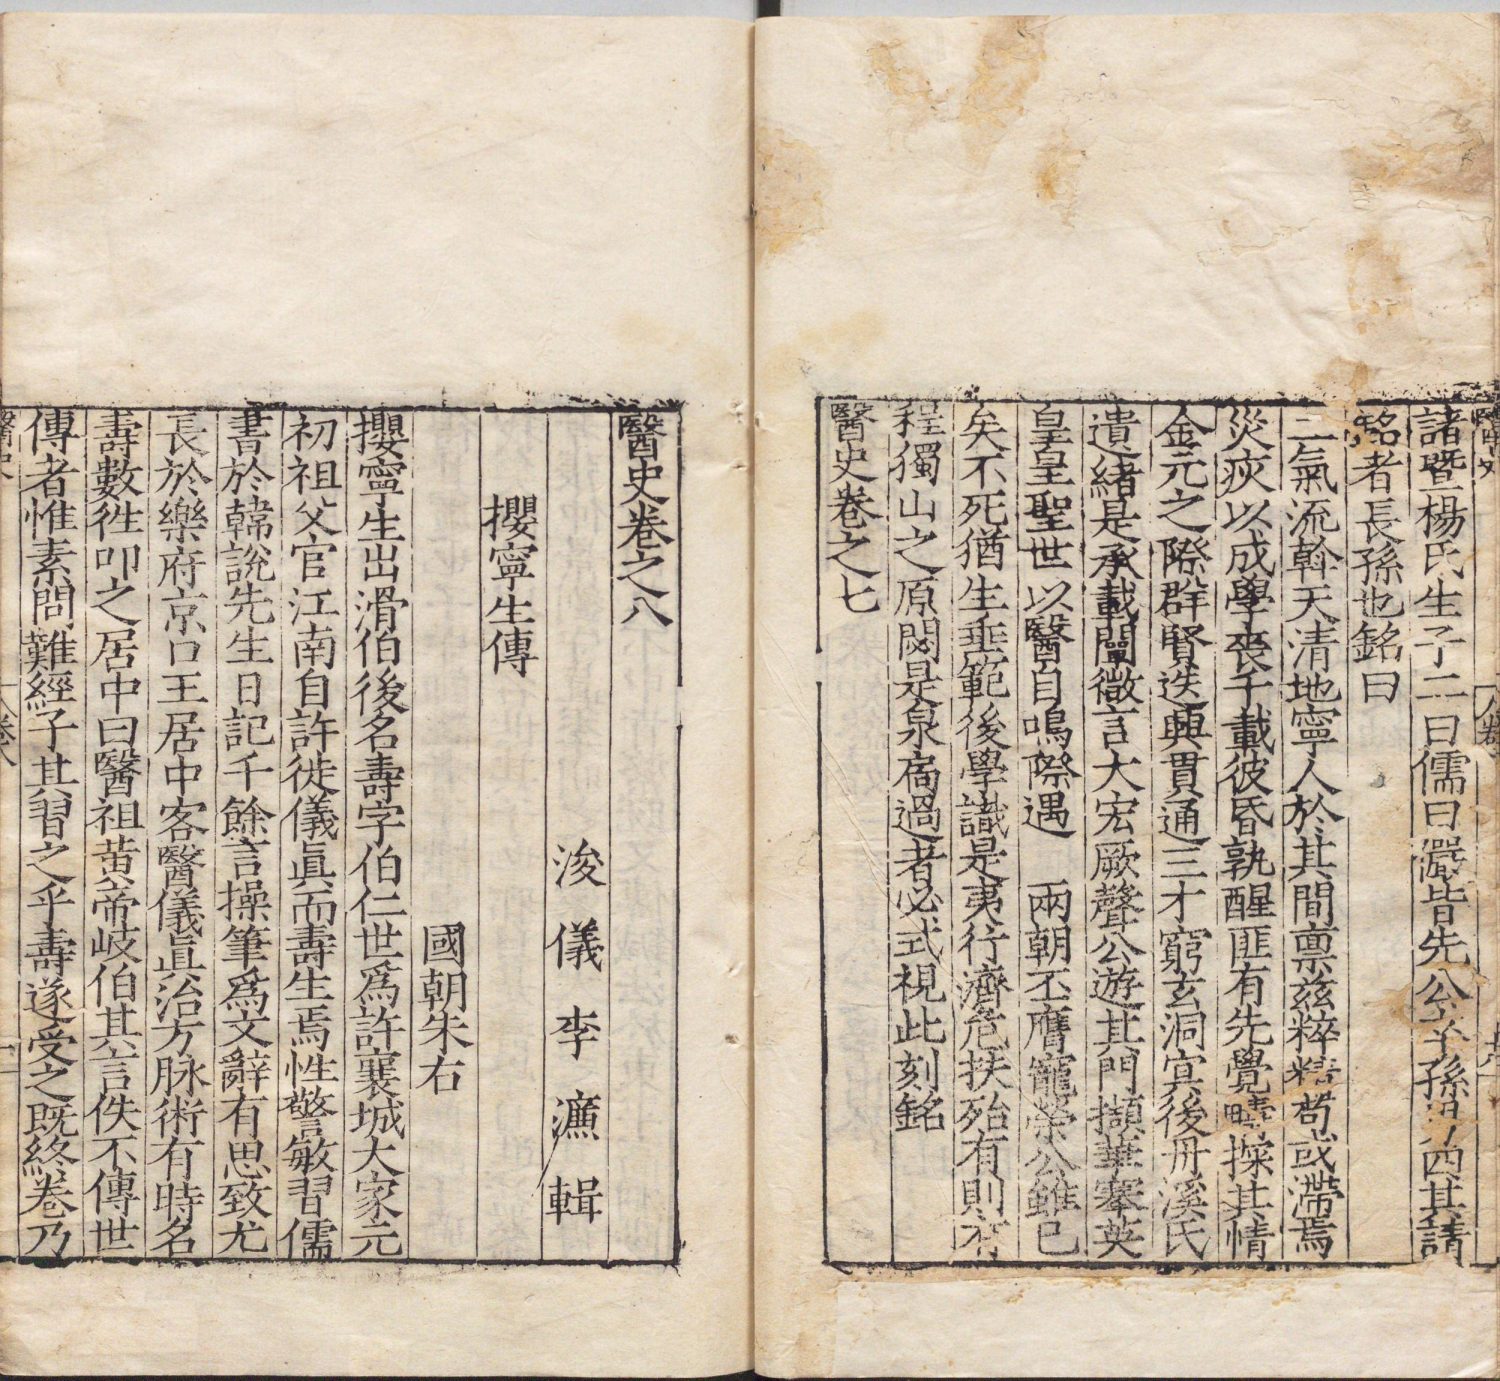 諸暨楊氏生子二曰儒曰巖皆先公卒孫男四其請
銘者長孫也銘曰
二氣流斡天清地寧人於其間禀兹粹精苟或滯焉
災疢以成學喪千載彼昏孰醒匪有先覺疇探其情
金元之際群賢迭興貫通三才窮玄洞冥後丹溪氏
遺緒是承載闡微言大宏厥聲公遊其門擷華搴英
皇皇聖世以醫自鳴際遇 兩朝丕膺寵榮公雖已
矣不死猶生垂範後學識是夷行濟危扶殆有則有
程獨山之原閟是泉扃過者必式視此刻銘
醫史卷之七
醫史卷之八
浚儀李濂輯
攖寧生傳
國朝朱右
攖寧生出滑伯後名壽字伯仁世爲許襄城大家元
初祖父官江南自許徙儀眞而壽生焉性警敏習儒
書於韓說先生日記千餘言操筆爲文辭有思致尤
長於樂府京口王居中客醫儀眞治方脉術有時名
壽數徃叩之居中曰醫祖黄帝岐伯其言佚不傳世
傳者惟素問難經子其習之乎壽遂受之既終卷乃